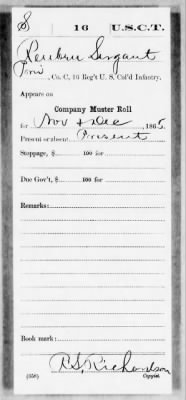 S | 16 | U.S.C.T.
Reuben Sergant
Priv, Co. C, 16 Reg't U. S. Col'd Infantry.
Appears on
Company Muster Roll
for Nov & Dec, 1865.
Present or absent Present
Stoppage, $ 100 for
Due Gov't, $ 100 for
Remarks:
Book mark:
R S Richardson
(358) Copyist.